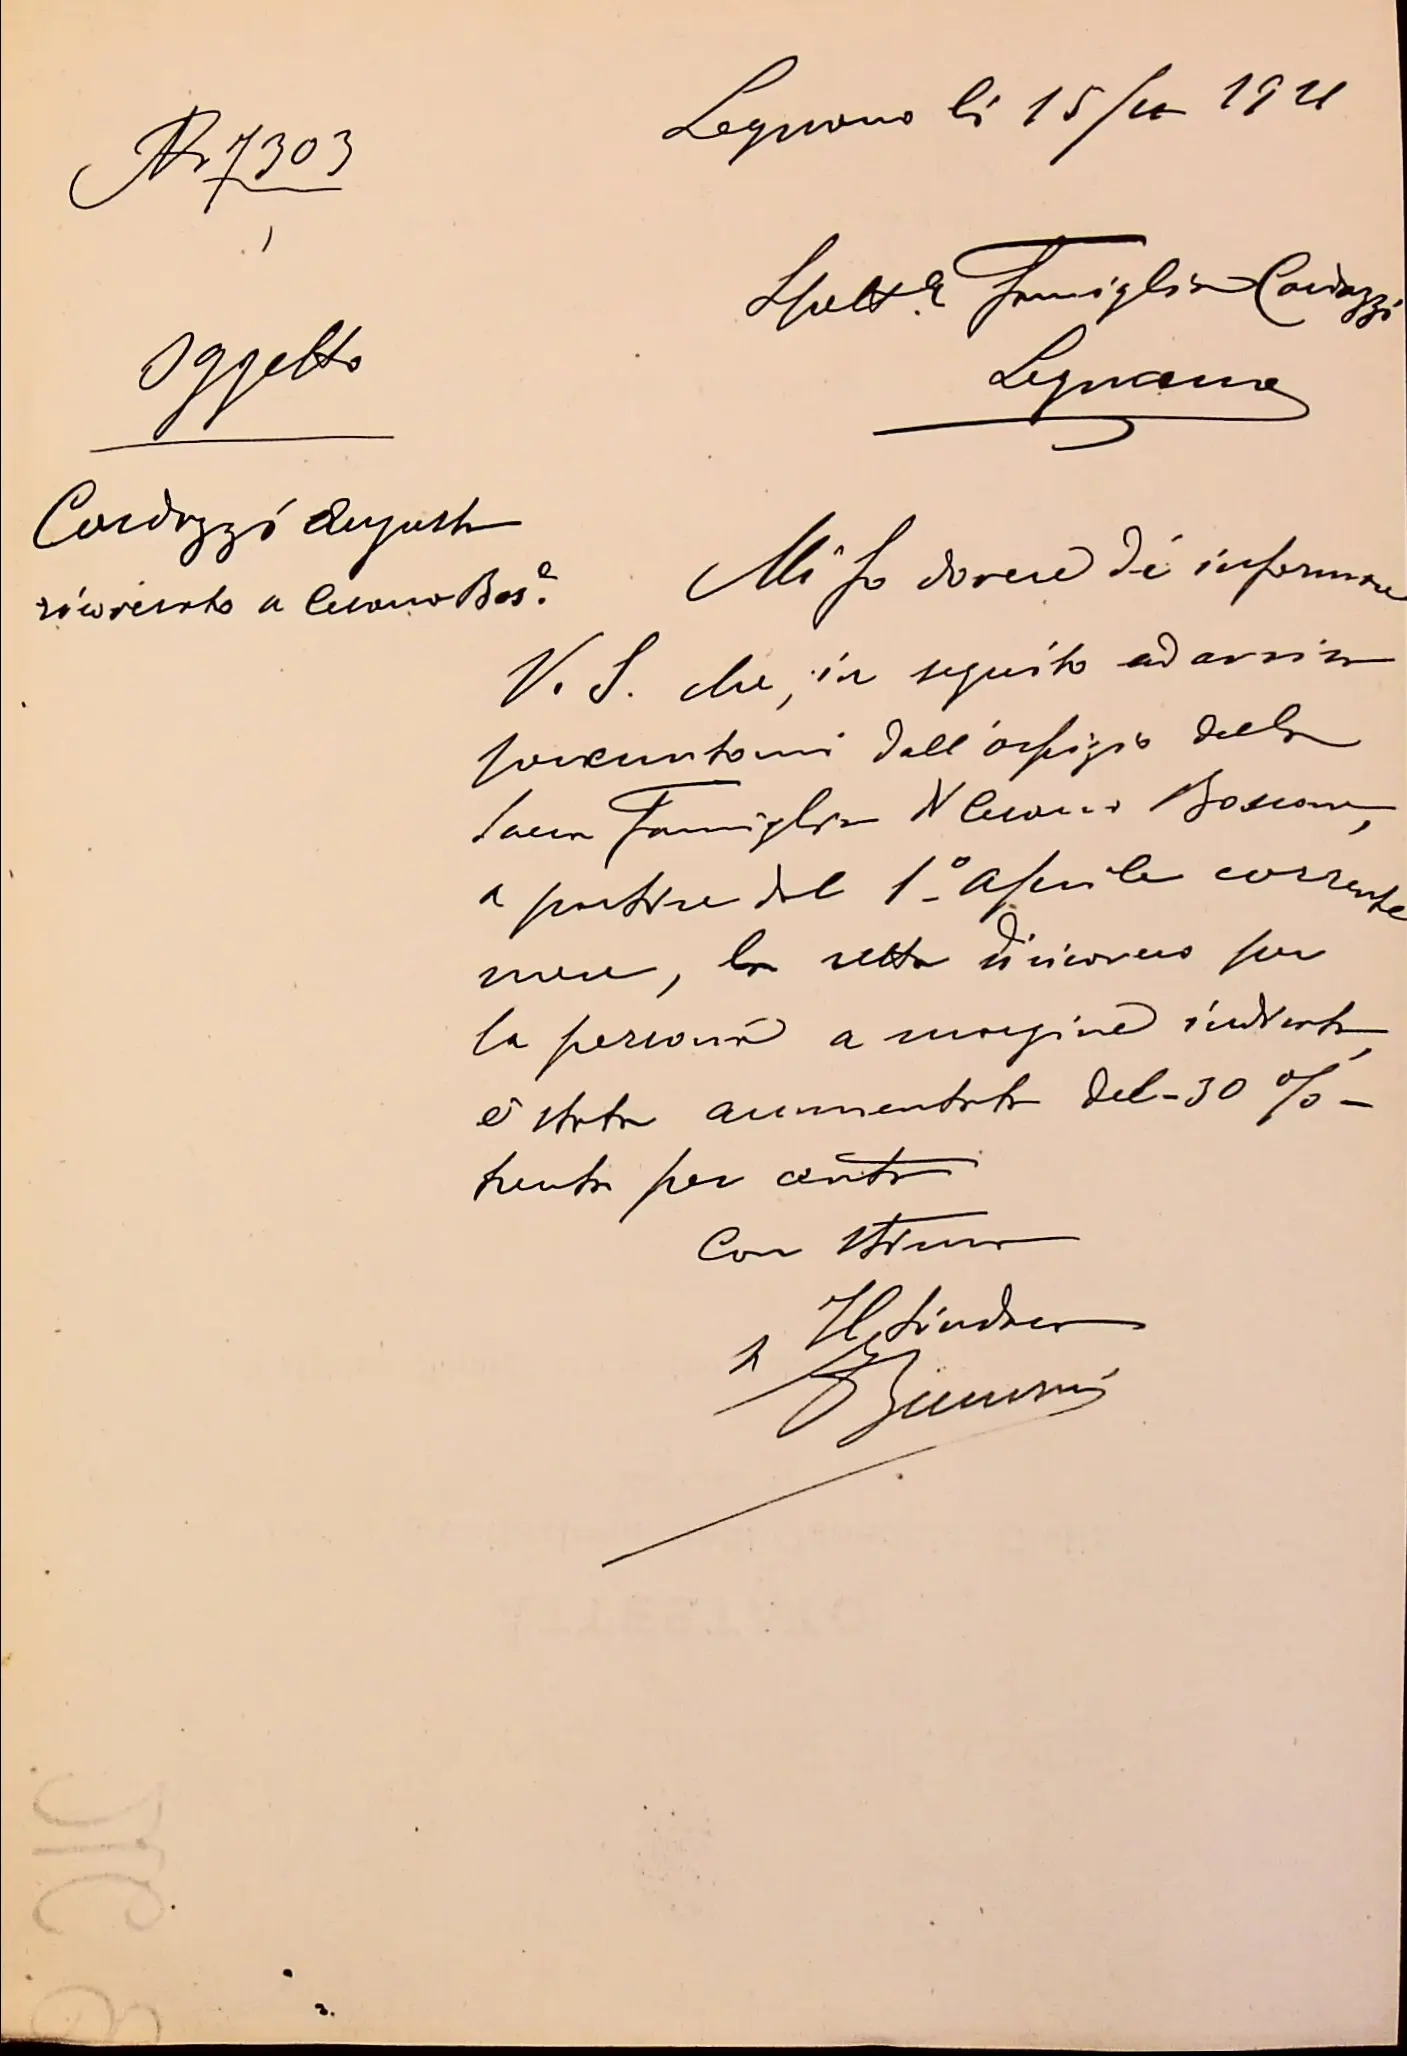 Legnano li 15/4 1921
Nr 7303
Spett.e Famiglia Cardazzi
Legnano
Oggetto
Cardazzi Augusta
ricoverato a Cesano Bos.e
Mi fo dovere di informare
V. S. che, in seguito ad avviso
pervenutomi dall'ospizio della
Sacra Famiglia di Cesano Boscone,
a partire dal 1° Aprile corrente
mese, la retta di ricovero per
la persona a margine indicata,
è stata aumentata del - 30 % -
trenta per cento
Con stima
Il Sindaco